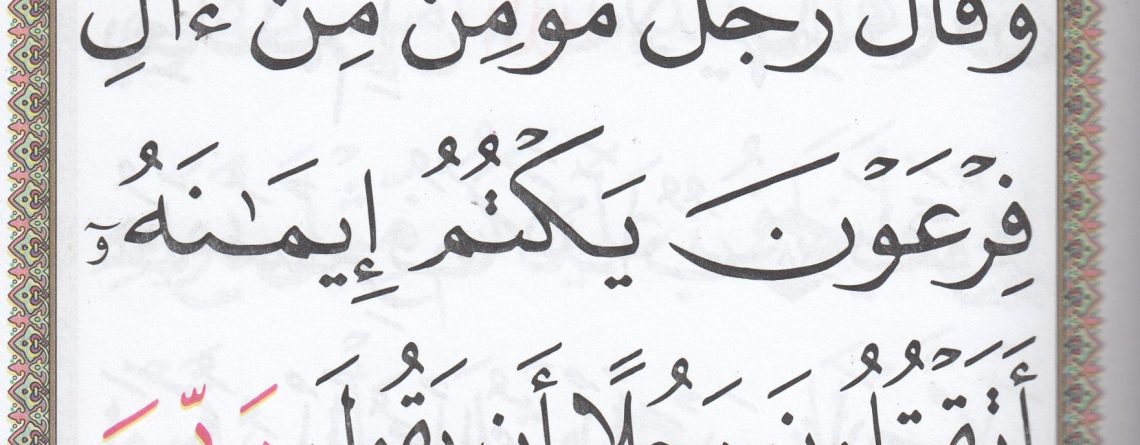 وقال رجل مؤمن من ءال
فِرْعَوْنَ يَكْتُمُ إِيمَـٰنَهُۥٓ
أَتَقْتُلُونَ رَجُلًا أَن يَقُولَ رَبِّىَ